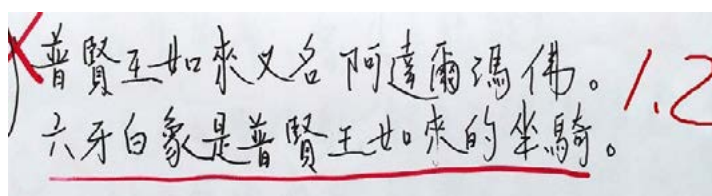 普賢王如來又名阿達爾瑪佛。 1.2
六牙白象是普賢王如來的坐騎。